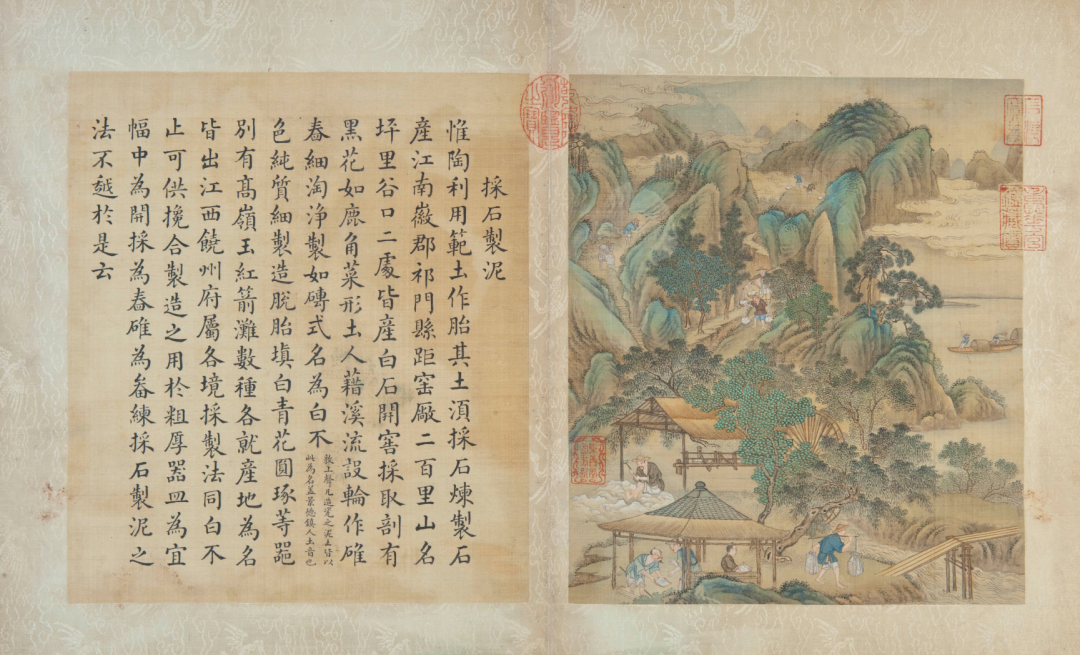 採石製泥
惟陶利用範土作胎其土湏採石煉製石
產江南徽郡祁門縣距窑厰二百里山名
坪里谷口二處皆產白石開窖採取剖有
黑花如鹿角菜形土人藉溪流設輪作碓
舂細淘淨製如磚式名為白不敦上聲凡造瓷之泥土皆以
此為名葢景德鎮人土音也
色純質細製造脫胎塡白青花圓琢等噐
別有高嶺玉紅箭灘數種各就產地為名
皆出江西饒州府屬各境採製法同白不
止可供攙合製造之用於粗厚器皿為宜
幅中為開採為舂碓為畚練採石製泥之
法不越於是云